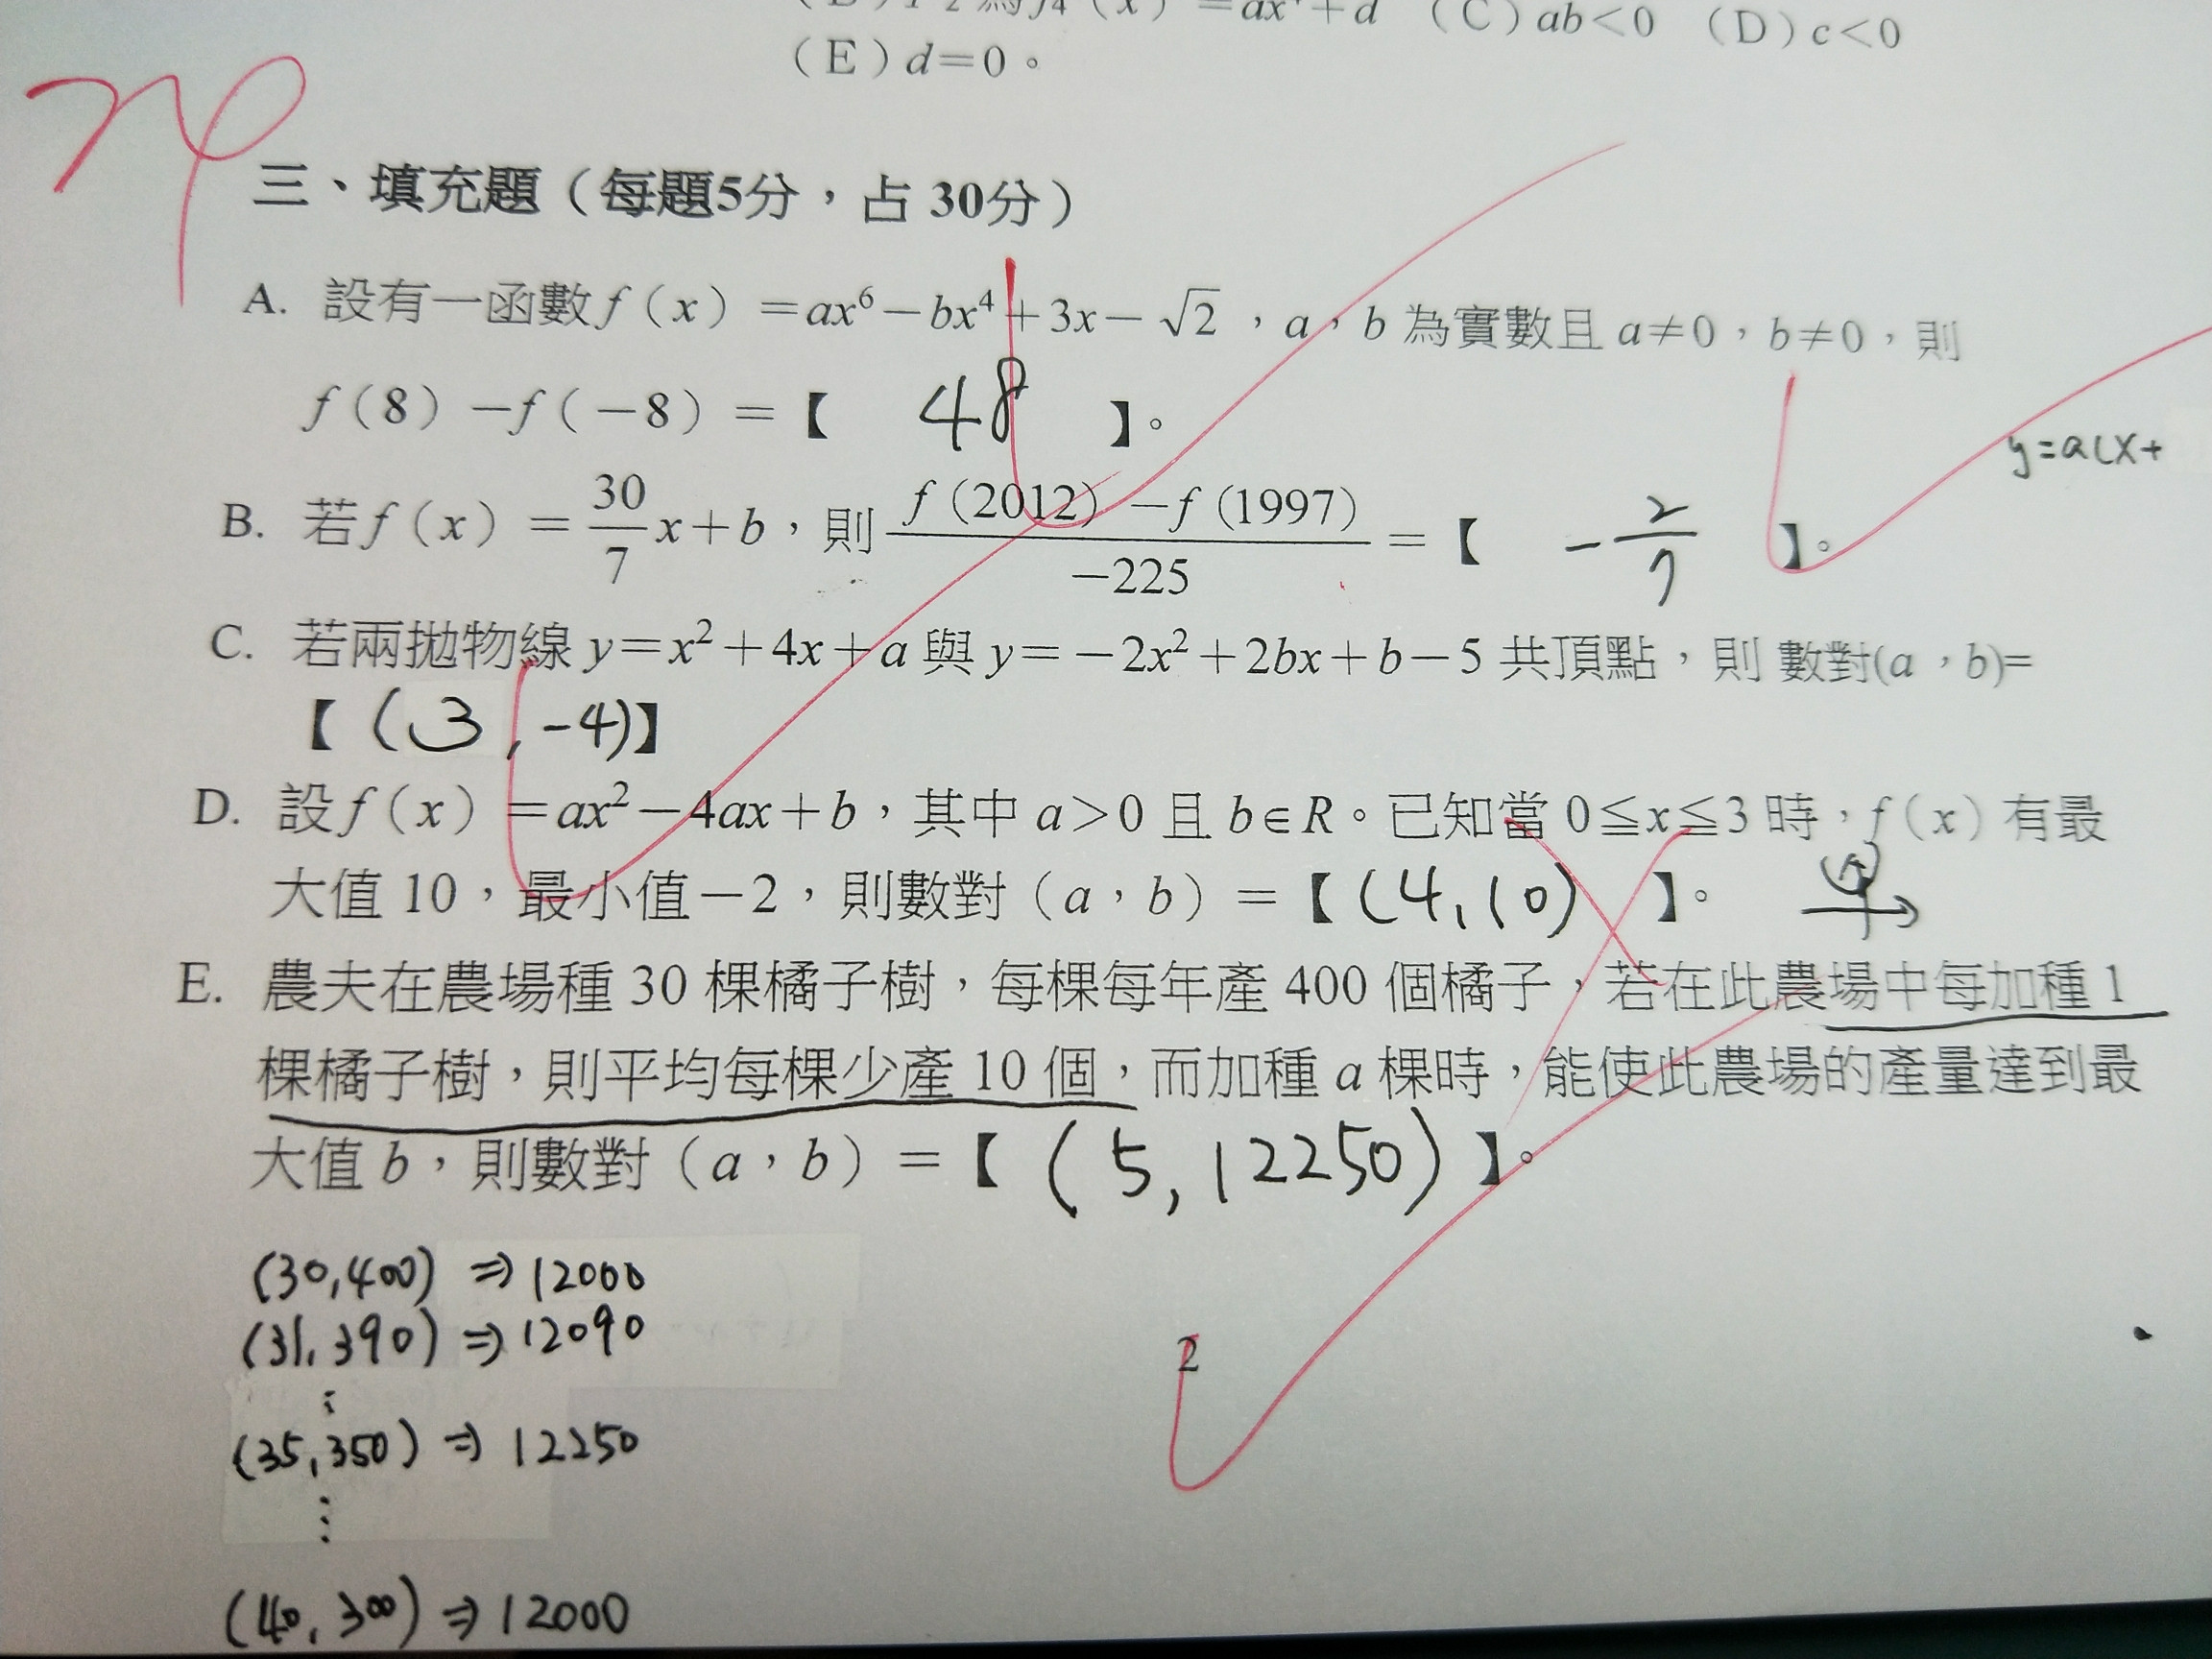 ax⁴+d (C)ab<0 (D)c<0
(E)d=0。
三、填充題(每題5分,占 30分)
A. 設有一函數f(x)=ax⁶-bx⁴+3x-√2,a,b 為實數且 a≠0,b≠0,則
f(8)-f(-8)=【 48 】。
y=a(x+
B. 若f(x)=30/7 x+b,則 (f(2012)-f(1997))/-225 =【 -2/7 】。
C. 若兩拋物線y=x²+4x+a與y=-2x²+2bx+b-5共頂點,則 數對(a,b)=
【 (3,-4)】
D. 設f(x)=ax²-4ax+b,其中 a>0 且 b∈R。已知當 0≦x≦3 時,f(x)有最
大值 10,最小值-2,則數對(a,b)=【 (4,10) 】。
E. 農夫在農場種 30 棵橘子樹,每棵每年產 400 個橘子,若在此農場中每加種 1
棵橘子樹,則平均每棵少產 10 個,而加種 a 棵時,能使此農場的產量達到最
大值 b,則數對(a,b)=【 (5,12250) 】。
(30,400) ⇒ 12000
(31,390) ⇒ 12090
⋮
(35,350) ⇒ 12250
⋮
(40,300) ⇒ 12000
2